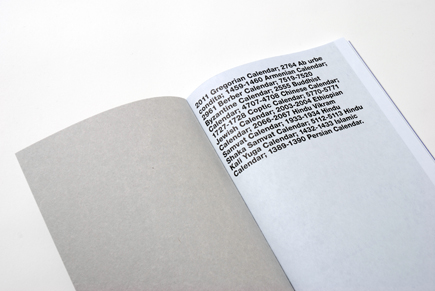 2011 Gregorian Calendar; 2764 Ab urbe
condita; 1459-1460 Armenian Calendar;
2961 Berber Calendar; 7519-7520
Byzantine Calendar; 2555 Buddhist
Calendar; 4707-4708 Chinese Calendar;
1727-1728 Coptic Calendar; 5770-5771
Jewish Calendar; 2003-2004 Ethiopian
Calendar; 2066-2067 Hindu Vikram
Samvat Calendar; 1933-1934 Hindu
Shaka Samvat Calendar; 5112-5113 Hindu
Kali Yuga Calendar; 1432-1433 Islamic
Calendar; 1389-1390 Persian Calendar.